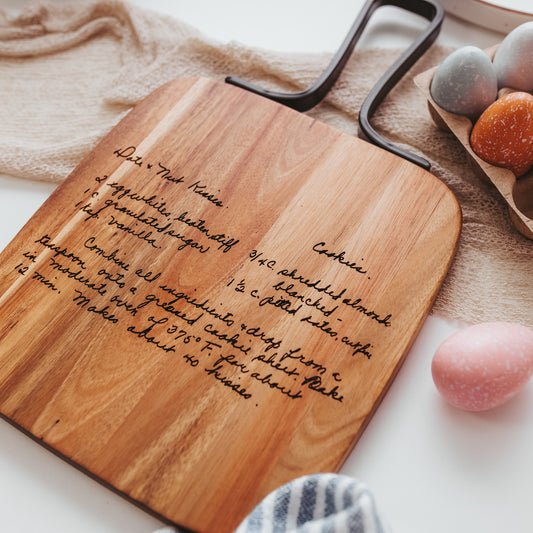 Date & Nut Kisses
Cookies.
2 eggwhites, beaten stiff
1 c. granulated sugar
1 tsp. vanilla
3/4 c. shredded almond
blanched -
1 1/2 c. pitted dates, cut fin
Combine all ingredients & drop from a
teaspoon onto a greased cookie sheet. Bake
in moderate oven of 375° F. for about
12 min. Makes about 40 kisses.